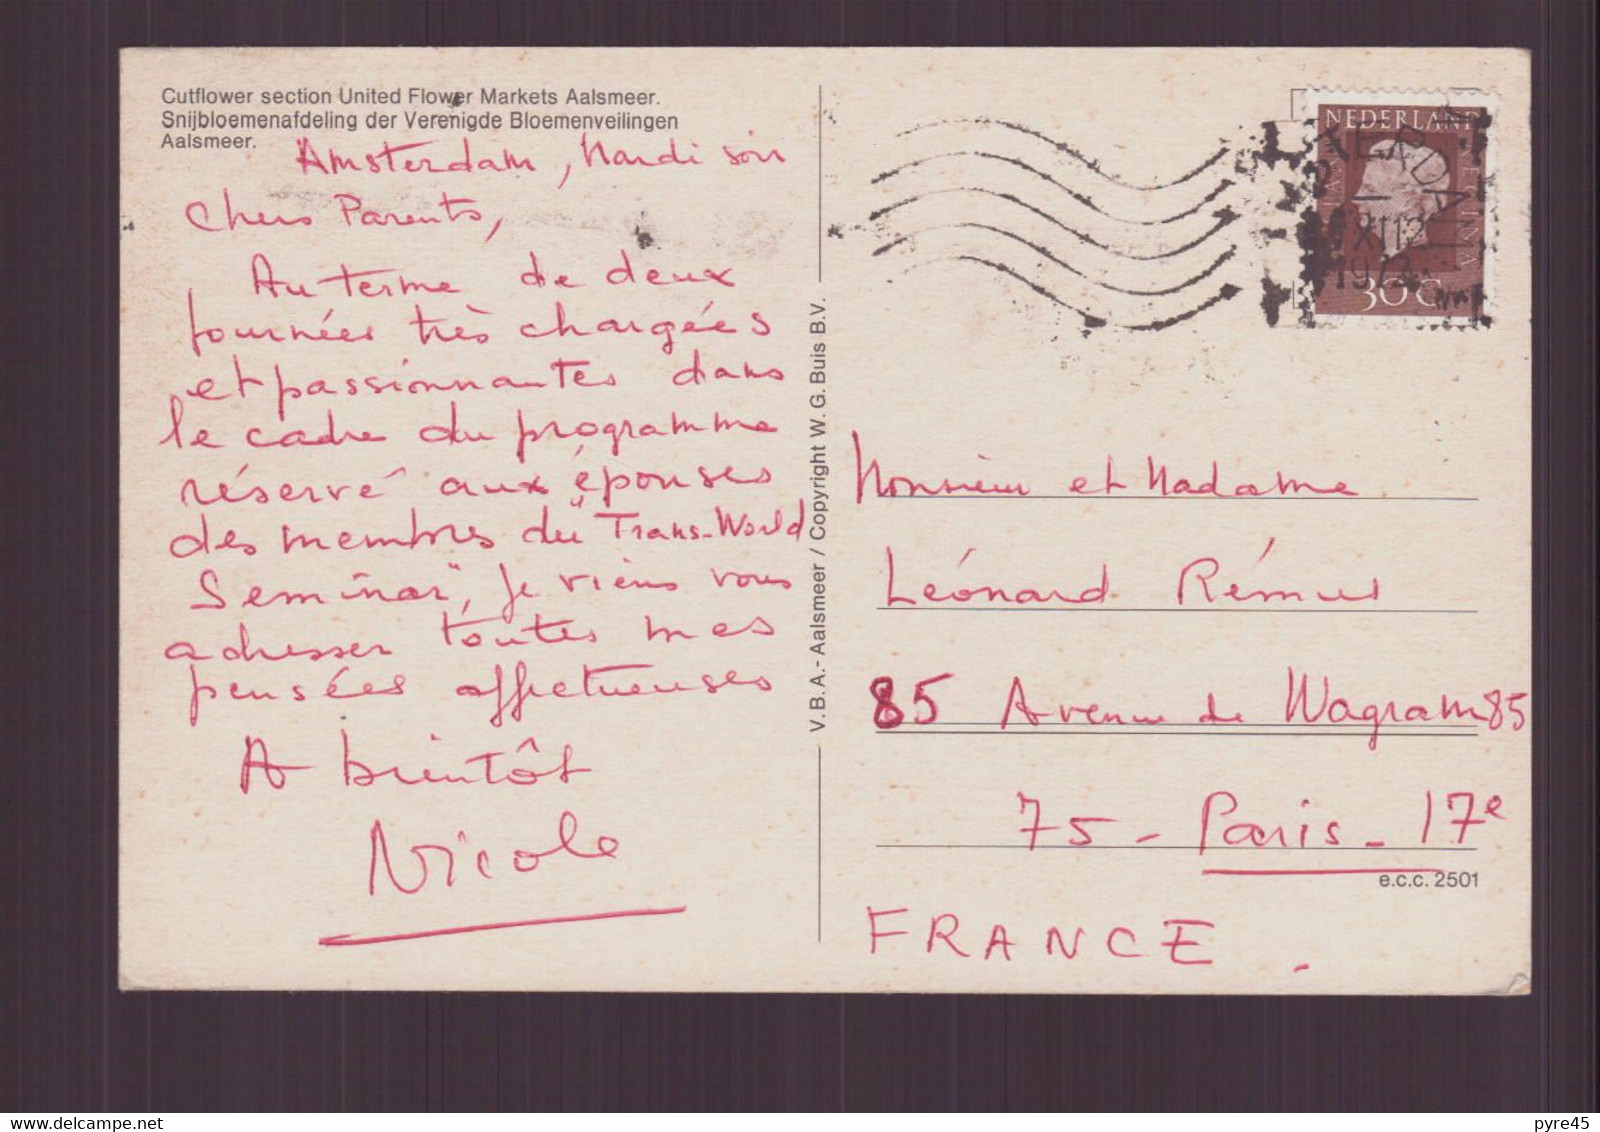 Cutflower section United Flower Markets Aalsmeer.
Snijbloemenafdeling der Verenigde Bloemenveilingen
Aalsmeer.
Amsterdam, Mardi soir
Chers Parents,
Au terme de deux
journées très chargées
et passionnantes dans
le cadre du programme
réservé aux épouses
des membres du "Trans-World
Seminar", je viens vous
adresser toutes mes
pensées affectueuses
A bientôt
Nicole
V.B.A.- Aalsmeer / Copyright W. G. Buis B.V.
NEDERLAND
30 C
Monsieur et Madame
Léonard Rémus
85 Avenue de Wagram 85
75 - Paris - 17e
e.c.c. 2501
FRANCE.
pyre45